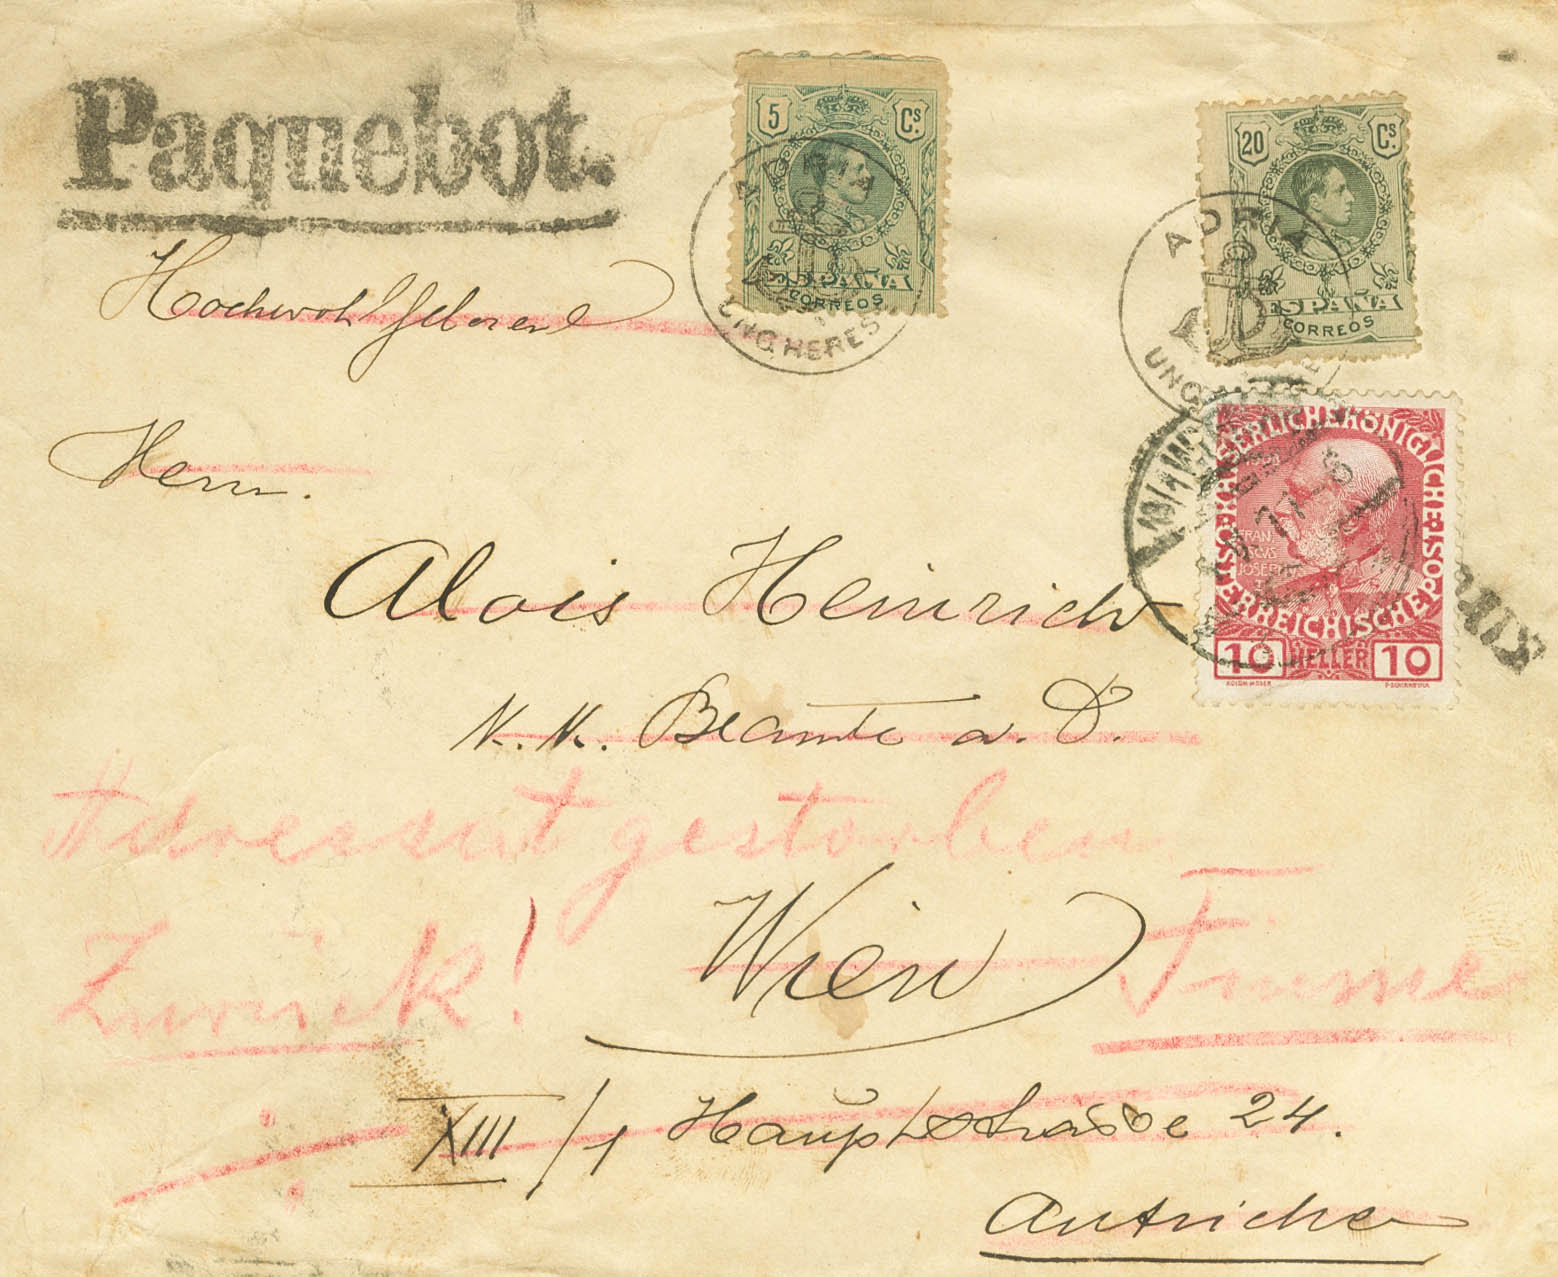 Paquebot.
5 Cs.
ESPAÑA
CORREOS
20 Cs.
ESPAÑA
CORREOS
ADRIA
UNGHERESE
ADRIA
Hochwohlgeboren
Herrn.
KAISERLICHE KÖNIGLICHE
ÖSTERREICHISCHE POST
FRAN
CISCVS
JOSEPHVS
10 HELLER 10
Alois Heinrich
K. K. Beamte a. D.
Adressat gestorben
Wien
Zurück!
Fiume
XIII/1 Hauptstrasse 24.
Autriche